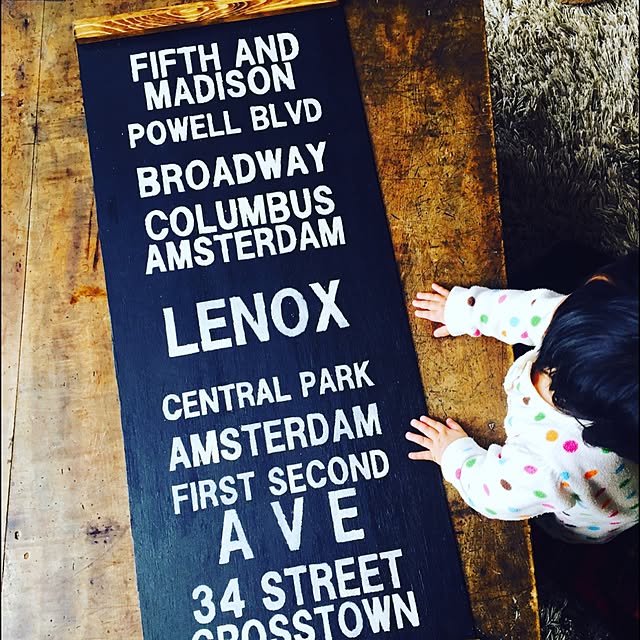 FIFTH AND
MADISON
POWELL BLVD
BROADWAY
COLUMBUS
AMSTERDAM
LENOX
CENTRAL PARK
AMSTERDAM
FIRST SECOND
AVE
34 STREET
CROSSTOWN